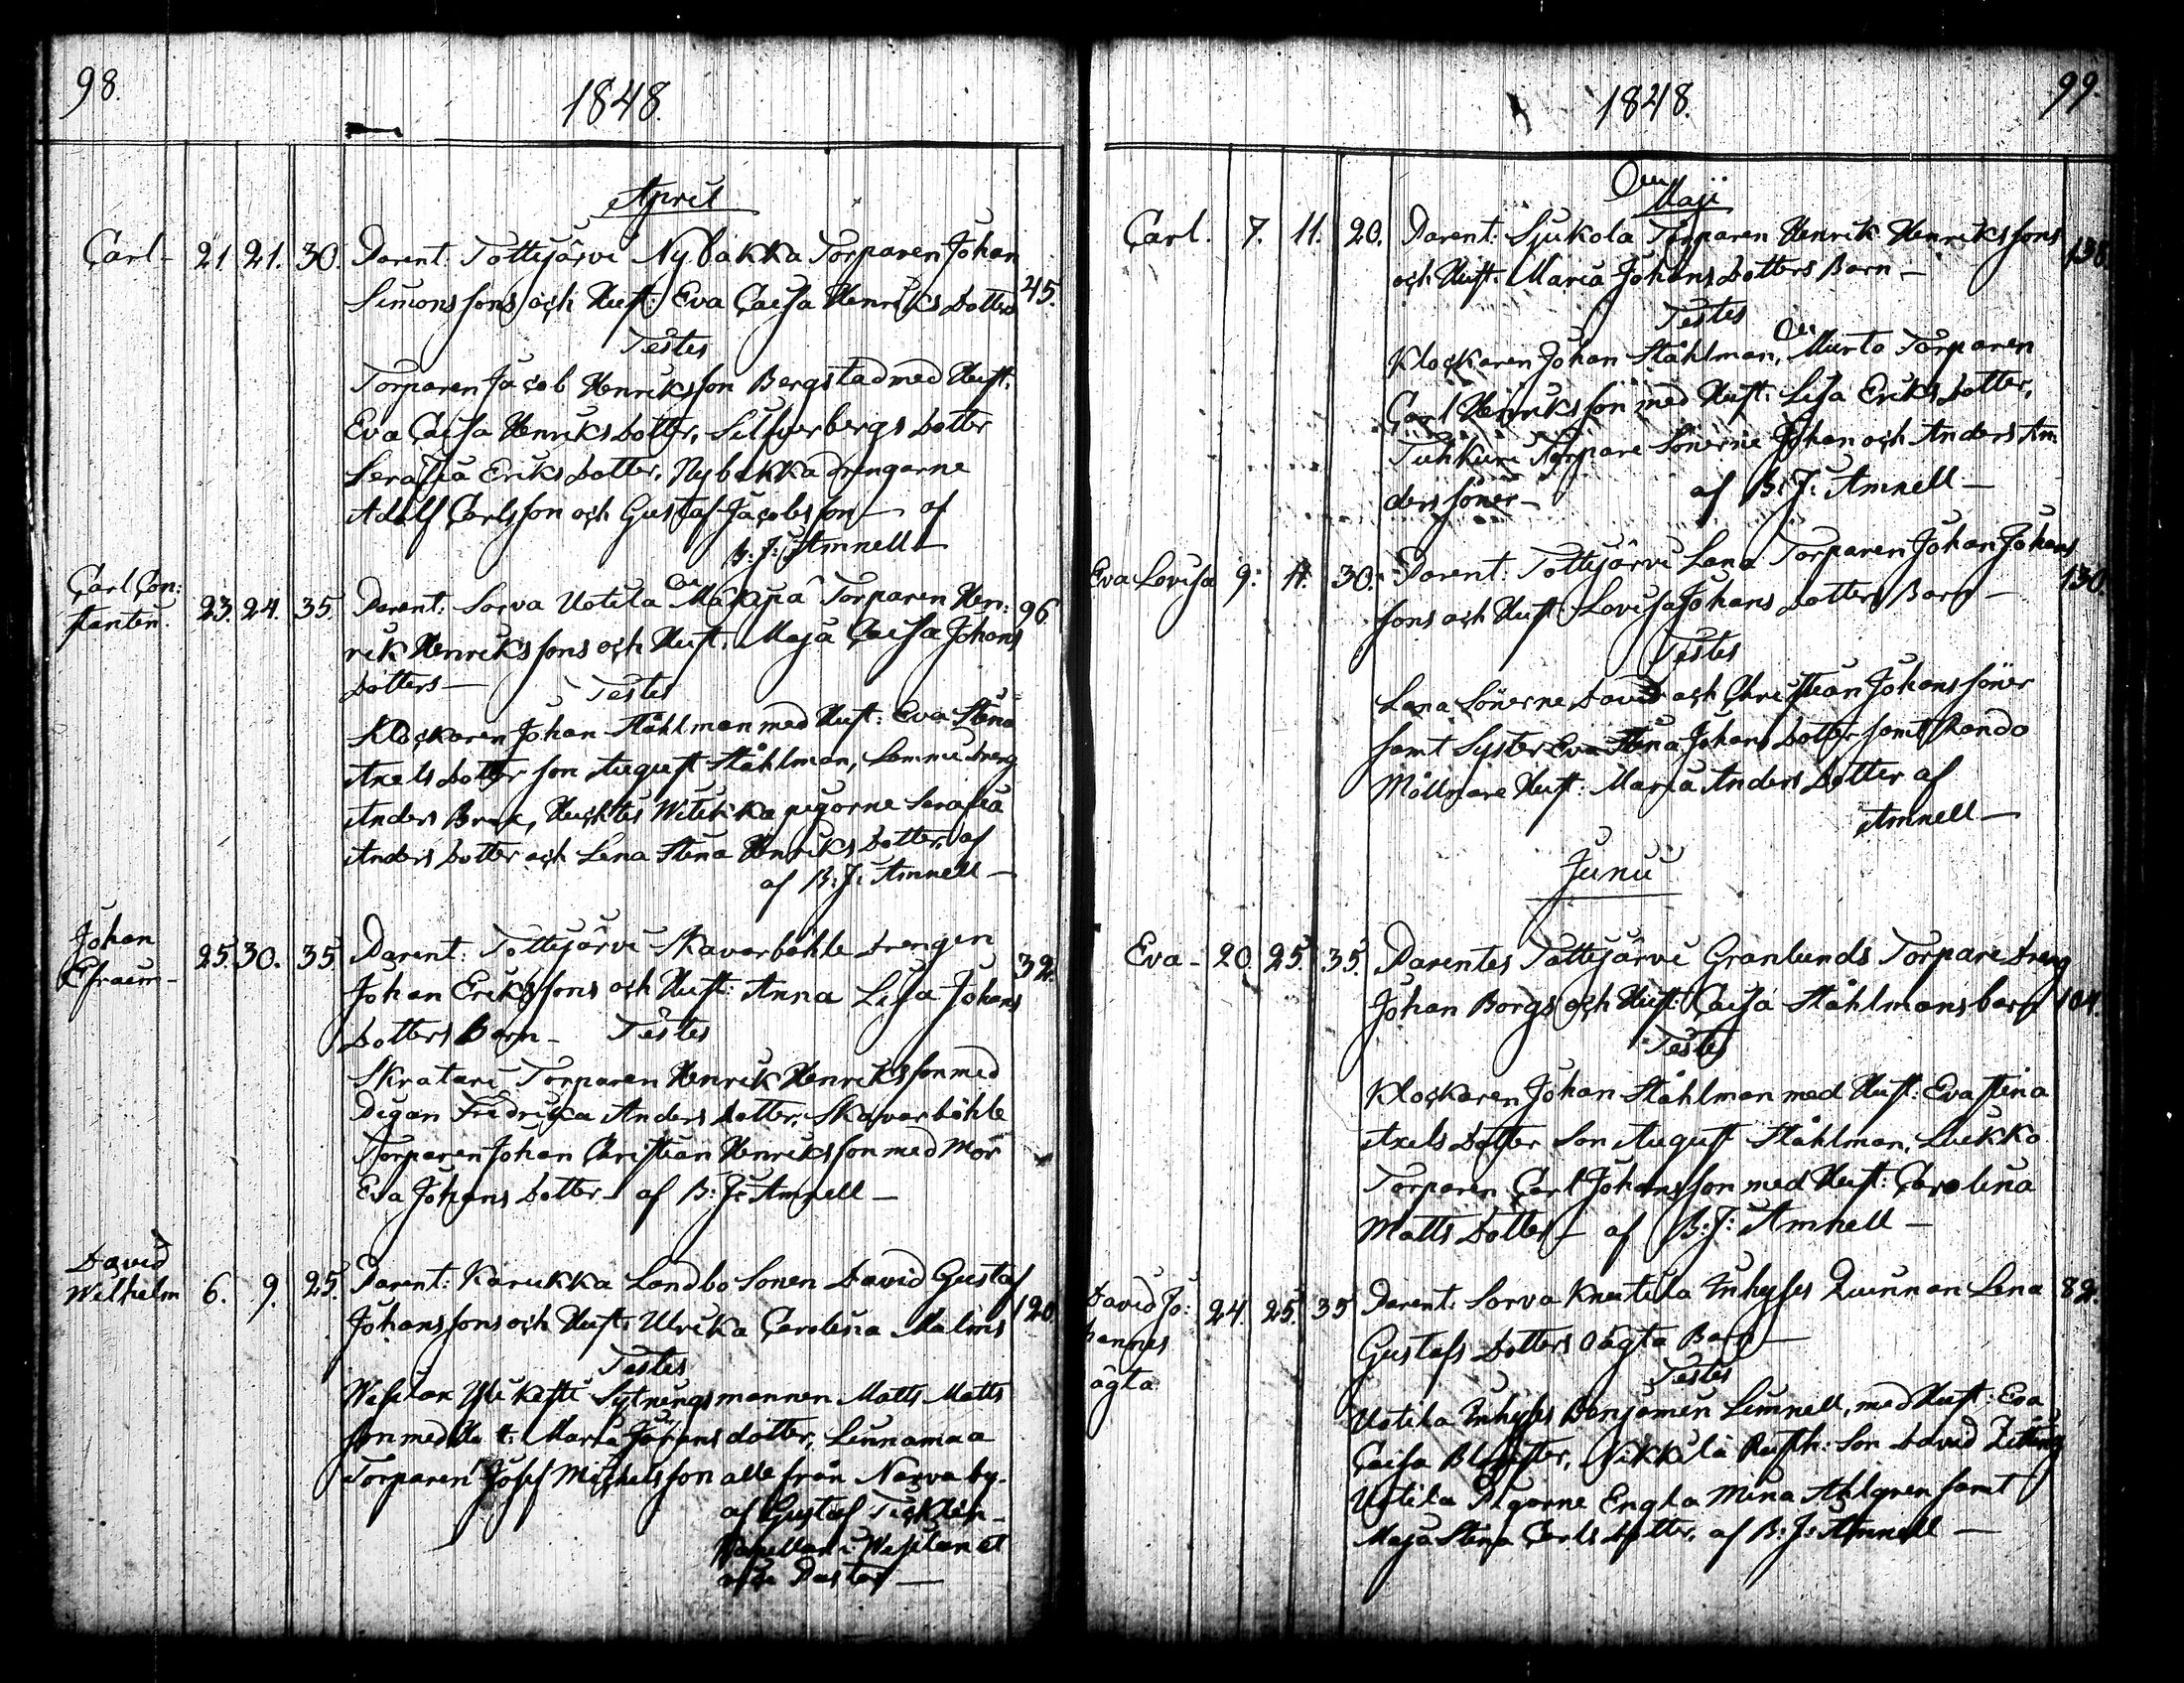 98.
1848.
April
Carl - 21. 21. 30. Parent: Tottijärvi Nybakka Torparen Johan
Simonssons och Hust: Eva Caisa Henriks Dotters 45.
Testes
Torparen Jacob Henriksson Bergstad med Hust:
Eva Caisa Henriks Dotter, Silfverbergs Dotter
Serafia Eriks Dotter, Nybakka drengarne
Adolf Carlsson och Gustaf Jacobsson - af
B: J: Amnell -
Carl Con:
stantin. 23. 24. 35. Parent: Sorva Uotila Torparen Hen: 96
rik Henrikssons och Hust: Maja Caisa Johans
Dotters - Testes
Klockaren Johan Ståhlman med Hust: Eva Stina
Axels Dotter son August Ståhlman, Lammi dreng
Anders Brax, Huchtis Witikka pigorne Serafia
Anders Dotter och Lena Stina Henriks Dotter, af
af B: J: Amnell -
Johan
Efraim - 25. 30. 35. Parent: Tottijärvi Skavarböhle drengen
Johan Erikssons och Hust: Anna Lisa Johans 32.
Dotters Barn - Testes
Skratari Torparen Henrik Henriksson med
Pigan Fredrika Anders Dotter, Skavarböhle
Torparen Johan Christian Henriksson med Mor
Eva Johans Dotter - af B: J: Amnell -
David
Wilhelm 6. 9. 25. Parent: Karukka Landbo Sonen David Gustaf
Johanssons och Hust: Ulrika Carolina Malins 120
Testes
Wesilax Sytningsmannen Matts Matts
son med Maria Johans dotter, Linnamaa
Torparen Josef Michelsson alle från Narva by.
af Gustaf Ticklén -
Kapellan i Wesilax et
Pastor -
99.
1848.
Maji
Carl. 7. 11. 20. Parent: Sjukola Torparen Henrik Henrikssons 138.
och Hust: Maria Johans Dotters Barn -
Testes
Klockaren Johan Ståhlman, Murto Torparen
Carl Henriksson med Hust: Lisa Eriks Dotter,
Tuhkuri Torpare Sönerne Johan och Anders An:
ders söner - af B: J: Amnell -
Eva Lovisa 9. 11. 30. Parent: Tottijärvi Lana Torparen Johan Johans 130.
sons och Hust Lovisa Johans Dotters Barn -
Testes
Lana Sönerne David och Christian Johans söner
samt Syster Eva Stina Johans Dotter samt Rando
Möllnare Hust: Maria Anders Dotter af
Amnell -
Junii
Eva - 20. 25. 35. Parentes Tottijärvi Granlunds Torpare dreng
Johan Borgs och Hust: Caisa Ståhlmans barn 104.
Testes
Klockaren Johan Ståhlman med Hust: Eva Stina
Axels Dotter Son August Ståhlman, Luikko
Torparen Carl Johansson med Hust: Carolina
Matts Dotter - af B: J: Amnell -
David Jo:
hannes
ägta 24. 25. 35 Parent: Sorva Knutila Inhyses Quinnan Lena 82.
Gustafs Dotters oägta Barn -
Testes
Uotila Inhyses Benjamin Limnell, med Hust: Eva
Caisa Nikkilä Rusth: Son David
Uotila Pigorne Engla Mina Ahlgren samt
Maja Stina Carls Dotter, af B: J: Amnell -